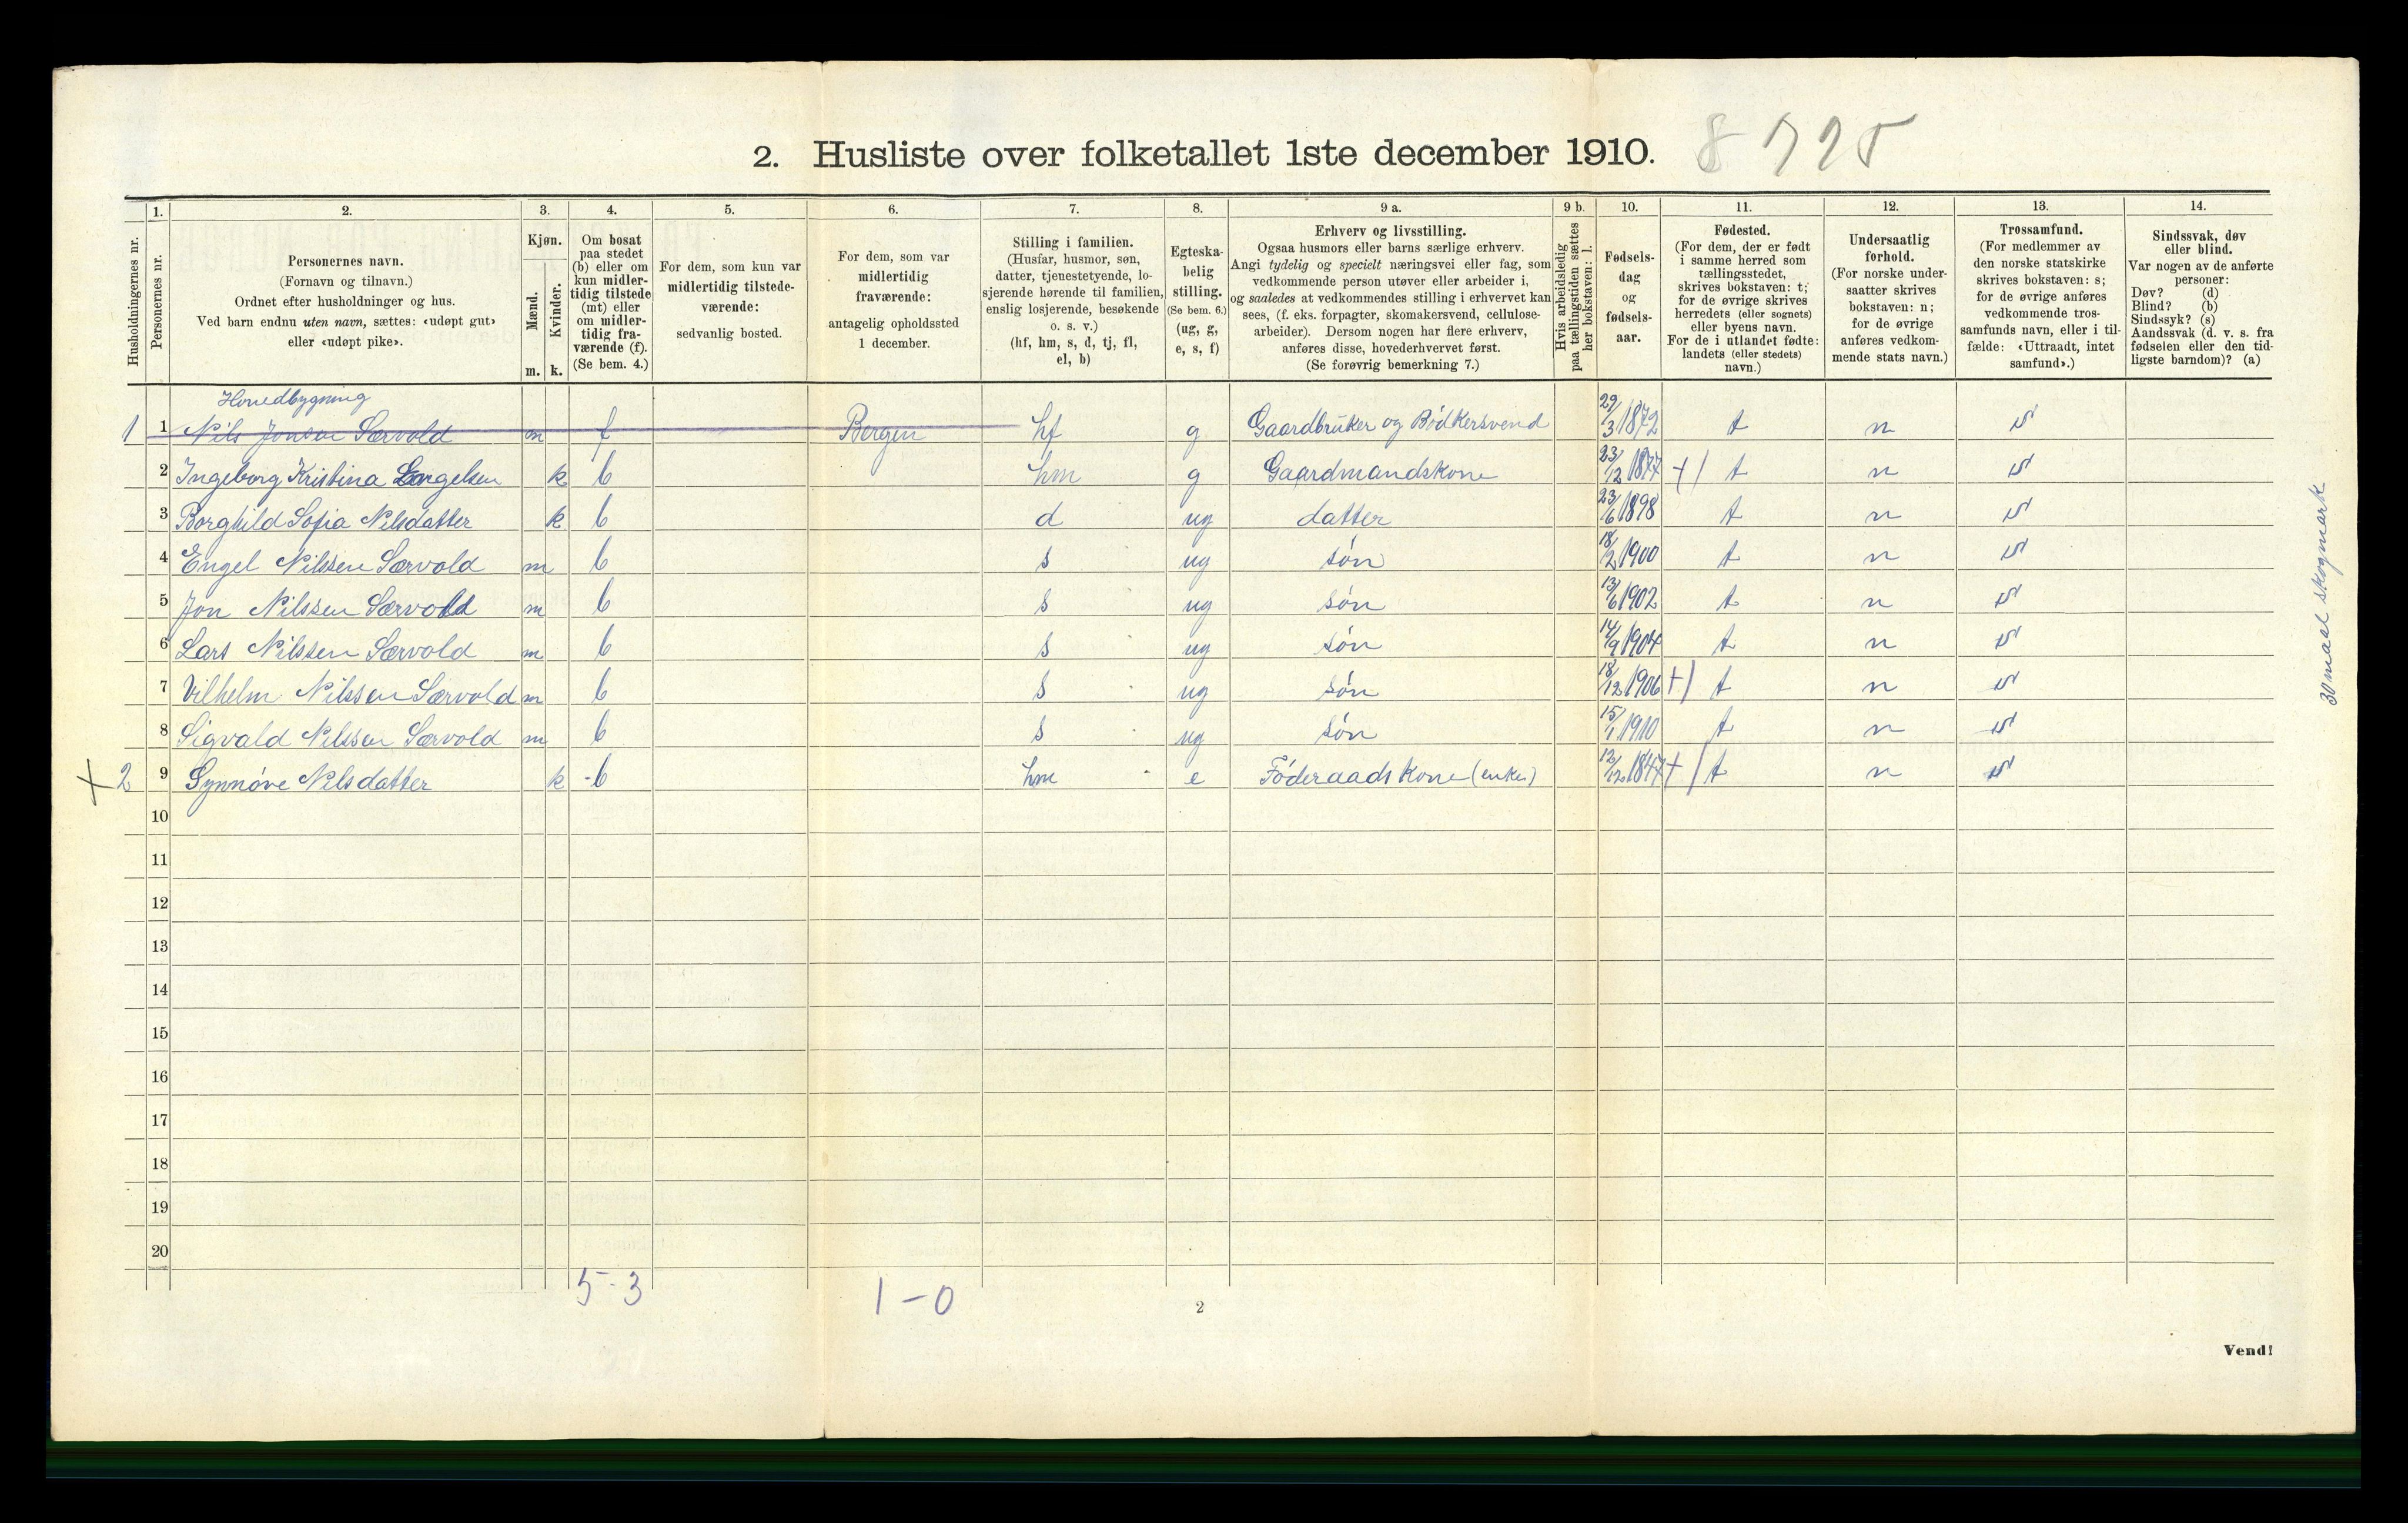 2. Husliste over folketallet 1ste december 1910.
Husholdningernes nr.
1.
Personernes nr.
2.
Personernes navn.
(Fornavn og tilnavn.)
Ordnet efter husholdninger og hus.
Ved barn endnu uten navn, sættes: «udøpt gut»
eller «udøpt pike».
3.
Kjøn.
Mænd.
Kvinder.
m. k.
4.
Om bosat
paa stedet
(b) eller om
kun midler-
tidig tilstede
(mt) eller
om midler-
tidig fra-
værende (f).
(Se bem. 4.)
5.
For dem, som kun var
midlertidig tilstede-
værende:
sedvanlig bosted.
6.
For dem, som var
midlertidig
fraværende:
antagelig opholdssted
1 december.
7.
Stilling i familien.
(Husfar, husmor, søn,
datter, tjenestetyende, lo-
sjerende hørende til familien,
enslig losjerende, besøkende
o. s. v.)
(hf, hm, s, d, tj, fl,
el, b)
8.
Egteska-
belig
stilling.
(Se bem. 6.)
(ug, g,
e, s, f)
9 a.
Erhverv og livsstilling.
Ogsaa husmors eller barns særlige erhverv.
Angi tydelig og specielt næringsvei eller fag, som
vedkommende person utøver eller arbeider i,
og saaledes at vedkommendes stilling i erhvervet kan
sees, (f. eks. forpagter, skomakersvend, cellulose-
arbeider). Dersom nogen har flere erhverv,
anføres disse, hovederhvervet først.
(Se forøvrig bemerkning 7.)
9 b.
Hvis arbeidsledig
paa tællingstiden sættes
her bokstaven: l.
10.
Fødsels-
dag
og
fødsels-
aar.
11.
Fødested.
(For dem, der er født
i samme herred som
tællingsstedet,
skrives bokstaven: t;
for de øvrige skrives
herredets (eller sognets)
eller byens navn.
For de i utlandet fødte:
landets (eller stedets)
navn.)
12.
Undersaatlig
forhold.
(For norske under-
saatter skrives
bokstaven: n;
for de øvrige
anføres vedkom-
mende stats navn.)
13.
Trossamfund.
(For medlemmer av
den norske statskirke
skrives bokstaven: s;
for de øvrige anføres
vedkommende tros-
samfunds navn, eller i til-
fælde: «Uttraadt, intet
samfund».)
14.
Sindssvak, døv
eller blind.
Var nogen av de anførte
personer:
Døv? (d)
Blind? (b)
Sindssyk? (s)
Aandssvak (d. v. s. fra
fødselen eller den tid-
ligste barndom)? (a)
Hovedbygning
1 1 Nils Jonsen Særvold m f Bergen hf g Gaardbruker og Bødkersvend 29/3 1872 t n s
2 Ingeborg Kristina Engelsen k b hm g Gaardmandskone 23/12 1877 +) t n s
3 Borghild Sofia Nilsdatter k b d ug datter 23/6 1898 t n s
4 Engel Nilssen Særvold m b s ug søn 18/2 1900 t n s
5 Jon Nilssen Særvold m b s ug søn 13/6 1902 t n s
6 Lars Nilssen Særvold m b s ug søn 14/9 1904 t n s
7 Vilhelm Nilssen Særvold m b s ug søn 18/12 1906 +) t n s
8 Sigvald Nilssen Særvold m b s ug søn 15/1 1910 t n s
+ 2 9 Synnøve Nilsdatter k b hm e Føderaadskone (enke) 12/12 1847 +) t n s
10
11
12
13
14
15
16
17
18
19
20
5-3
1-0
2
Vend!
30 maal skogmark